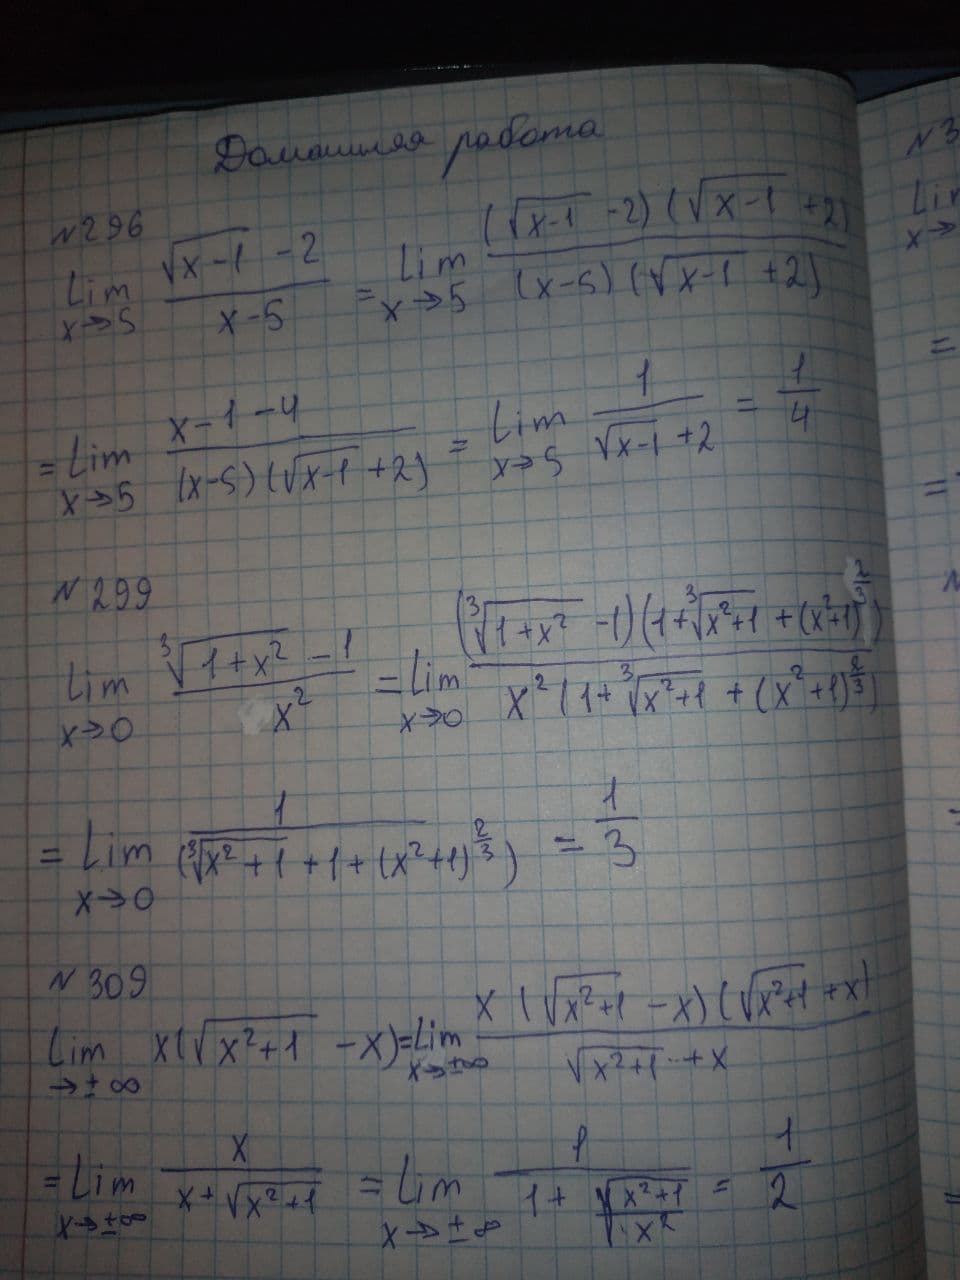 Домашняя работа
№296
lim x→5 (√(x-1) -2)/(x-5) = lim x→5 ((√(x-1) -2)(√(x-1) +2))/((x-5)(√(x-1) +2))
= lim x→5 (x-1-4)/((x-5)(√(x-1) +2)) = lim x→5 1/(√(x-1) +2) = 1/4
№299
lim x→0 (∛(1+x²) -1)/x² = lim x→0 ((∛(1+x²) -1)(1+∛(x²+1) +(x²+1)^(2/3)))/(x²(1+∛(x²+1) +(x²+1)^(2/3)))
= lim x→0 1/(∛(x²+1) +1+(x²+1)^(2/3)) = 1/3
№309
lim →±∞ x(√(x²+1) -x) = lim x→±∞ (x(√(x²+1) -x)(√(x²+1) +x))/(√(x²+1) +x)
= lim x→±∞ x/(x+√(x²+1)) = lim x→±∞ 1/(1+√((x²+1)/x²)) = 1/2
№3
x→
=
=